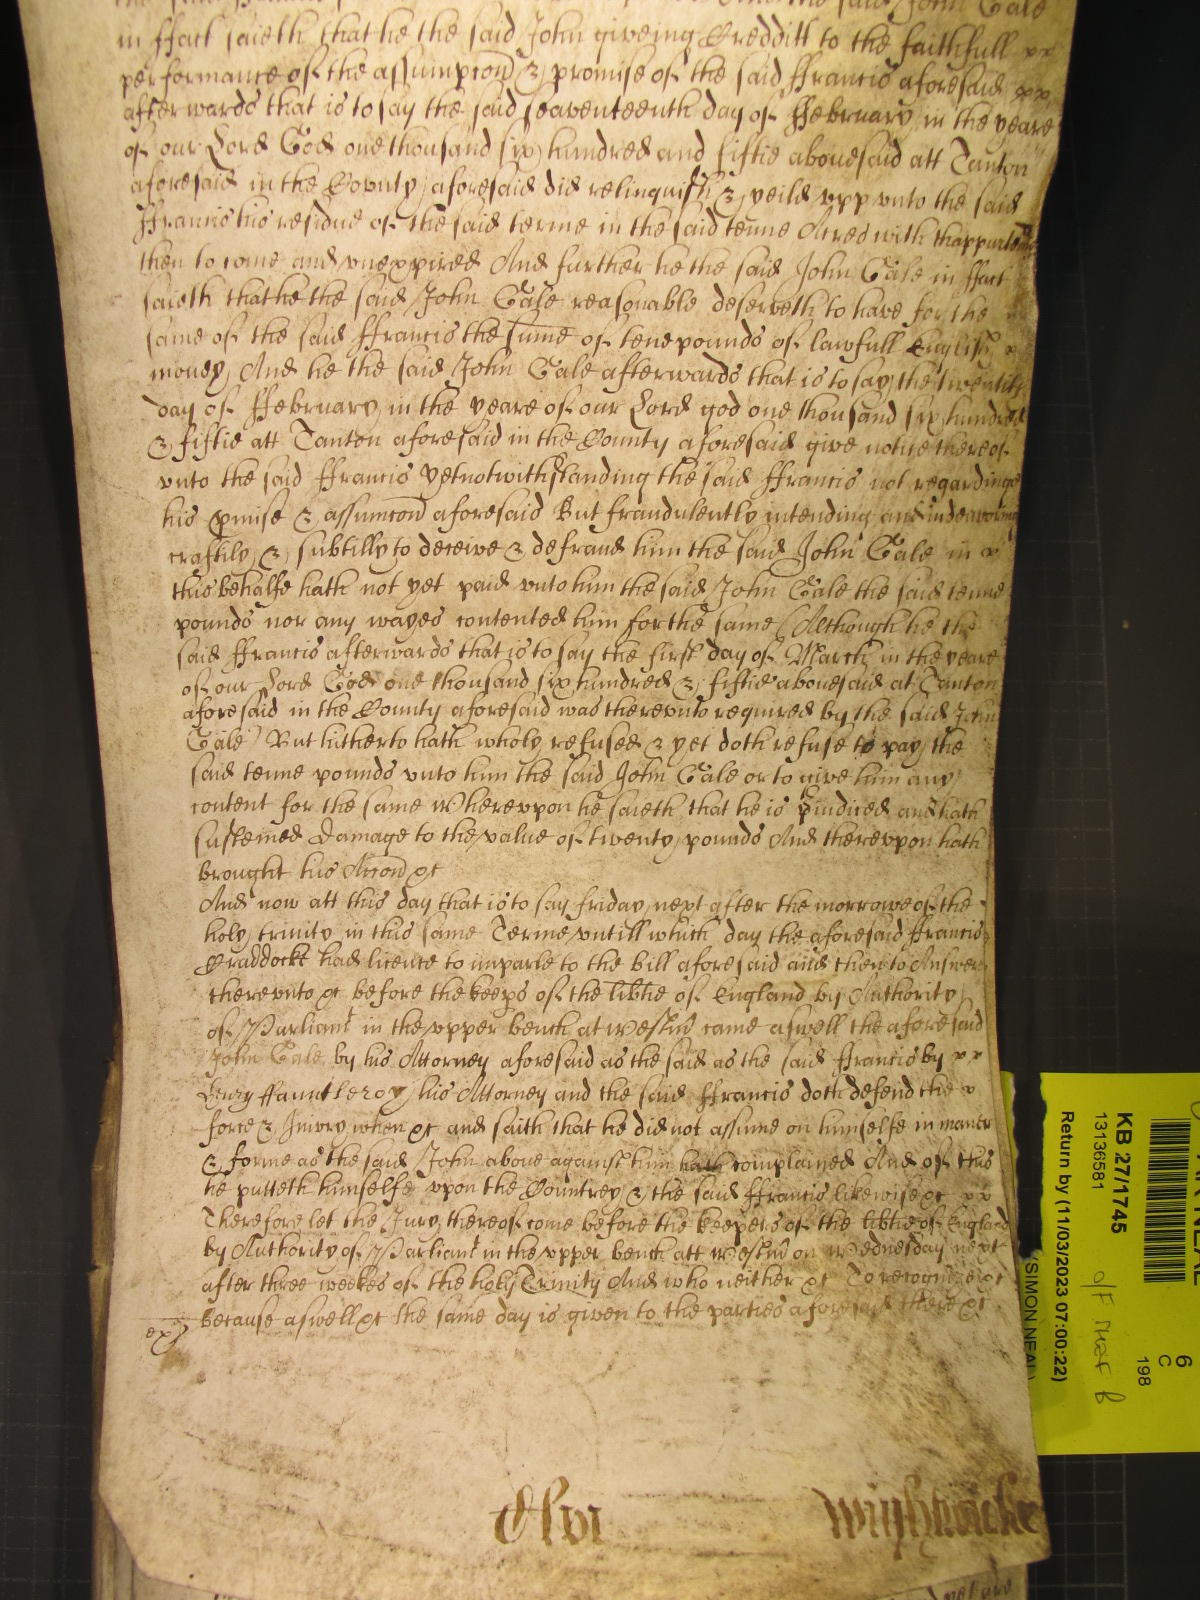 the said John Gale
in ffact saieth that he the said John giveing Credditt to the faithfull xx
performance of the assumpcon & promise of the said ffrancis aforesaid xx
afterwards that is to say the said seaventeenth day of ffebruary in the yeare
of our Lord God one thousand six hundred and fiftie abovesaid att Tanton
aforesaid in the County aforesaid did relinquish & yeild vpp vnto the said
ffrancis his residue of the said terme in the said tenne Acres with thappurten
then to come and vnexpired And further he the said John Gale in ffact
saieth that he the said John Gale reasonable deserveth to have for the
same of the said ffrancis the sume of tene pounds of lawfull English x
money And he the said John Gale afterwards that is to say the twentith
day of ffebruary in the yeare of our Lord god one thousand six hundred
& fiftie att Tanton aforesaid in the County aforesaid give notice thereof
vnto the said ffrancis yet notwithstanding the said ffrancis not regardinge
his pmise & assumcon aforesaid But fraudulently intending and indeavoring
craftily & subtilly to deceive & defraud him the said John Gale in x
this behalfe hath not yet paid vnto him the said John Gale the said tenne
pounds nor any wayes contented him for the same (Although he the
said ffrancis afterwards that is to say the first day of March in the yeare
of our Lord God one thousand six hundred & fiftie abovesaid at Tanton
aforesaid in the County aforesaid was therevnto required by the said John
Gale) But hitherto hath wholy refused & yet doth refuse to pay the
said tenne pounds vnto him the said John Gale or to give him any
content for the same Wherevpon he saieth that he is piudiced and hath
susteined Damage to the value of twenty pounds And therevpon hath
brought his Accon &c
And now att this day that is to say friday next after the morrowe of the
holy trinity in this same Terme vntill which day the aforesaid ffrancis
Craddockt had licence to imparle to the bill aforesaid and then to Answere
therevnto &c before the keeps of the libtie of England by Authority
of Parliamt in the vpper bench at Westm came aswell the aforesaid
John Gale by his Attorney aforesaid as the said as the said ffrancis by xx
Henry ffauntleroy his Attorney and the said ffrancis doth defend the x
force & Iniury when &c and saith that he did not assume on himselfe in maner
& forme as the said John above against him hath complained And of this
he putteth himselfe vpon the Countrey & the said ffrancis likewise &c xx
Therefore let the Jury thereof come before the keepers of the libtie of England
by Authority of Parliamt in the vpper bench att Westm on Wednesday next
after three weekes of the holy Trinity And who neither &c To recognize &c
because aswell &c the same day is given to the parties aforesaid there &c
ex
Wightwicke
KB 27/1745
13136581
Return by (11/03/2023 07:00:22)
SIMON NEAL
6
C
198